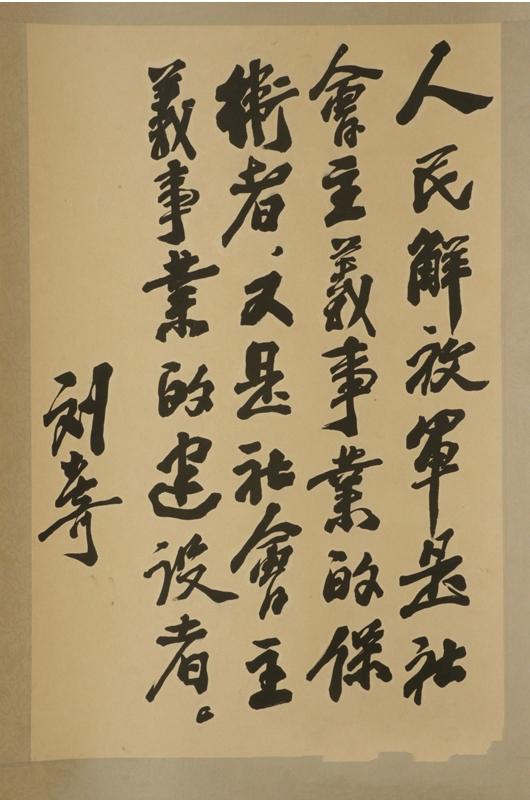 人民解放軍是社
會主義事業的保
衛者，又是社會主
義事業的建设者。
刘少奇